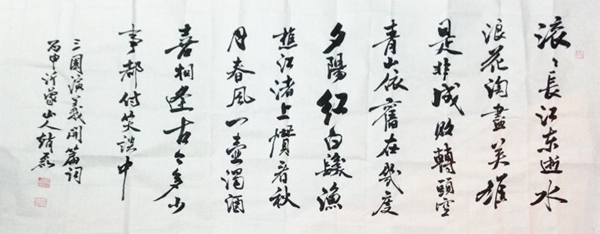 滚〻長江东逝水
浪花淘盡英雄
是非成败轉頭空
青山依舊在幾度
夕陽红白髮漁
樵江渚上慣看秋
月春风一壶濁酒
喜相逢古今多少
事都付笑談中
三國演義開篇詞
丙申沂蒙山人